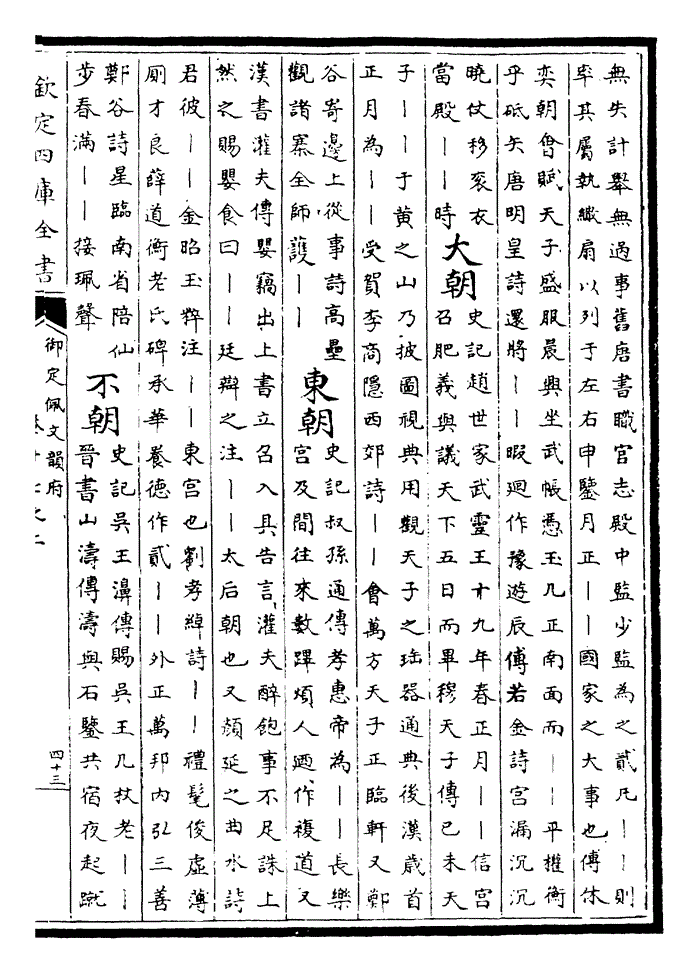 無失計舉無過事舊唐書職官志殿中監少監為之貳凡｜｜則
率其屬執繖扇以列于左右申鑒月正｜｜國家之大事也傅休
奕朝會賦天子盛服晨興坐武帳憑玉几正南面而｜｜平權衡
乎砥矢唐明皇詩還將｜｜暇迴作豫遊辰傅若金詩宮漏沉沉
曉仗移衮衣
當殿｜｜時
大朝
史記趙世家武靈王十九年春正月｜｜信宮
召肥義與議天下五日而畢穆天子傳己未天
子｜｜于黄之山乃披圖視典用觀天子之珤器通典後漢歲首
正月為｜｜受賀李商隱西郊詩｜｜會萬方天子正臨軒又鄭
谷寄邊上從事詩高壘
觀諸寨全師護｜｜
東朝
史記叔孫通傳孝惠帝為｜｜長樂
宮及間往來數蹕煩人廼作複道又
漢書灌夫傳嬰竊出上書立召入具告言灌夫醉飽事不足誅上
然之賜嬰食曰｜｜廷辯之注｜｜太后朝也又顔延之曲水詩
君彼｜｜金昭玉粹注｜｜東宮也劉孝綽詩｜｜禮髦俊虛薄
厠才良薛道衡老氏碑承華養德作貳｜｜外正萬邦内弘三善
鄭谷詩星臨南省陪仙
步春滿｜｜接珮聲
不朝
史記吳王濞傳賜吳王几杖老｜｜
晉書山濤傳濤與石鑒共宿夜起蹴
欽定四庫全書
御定佩文韻府
四十三